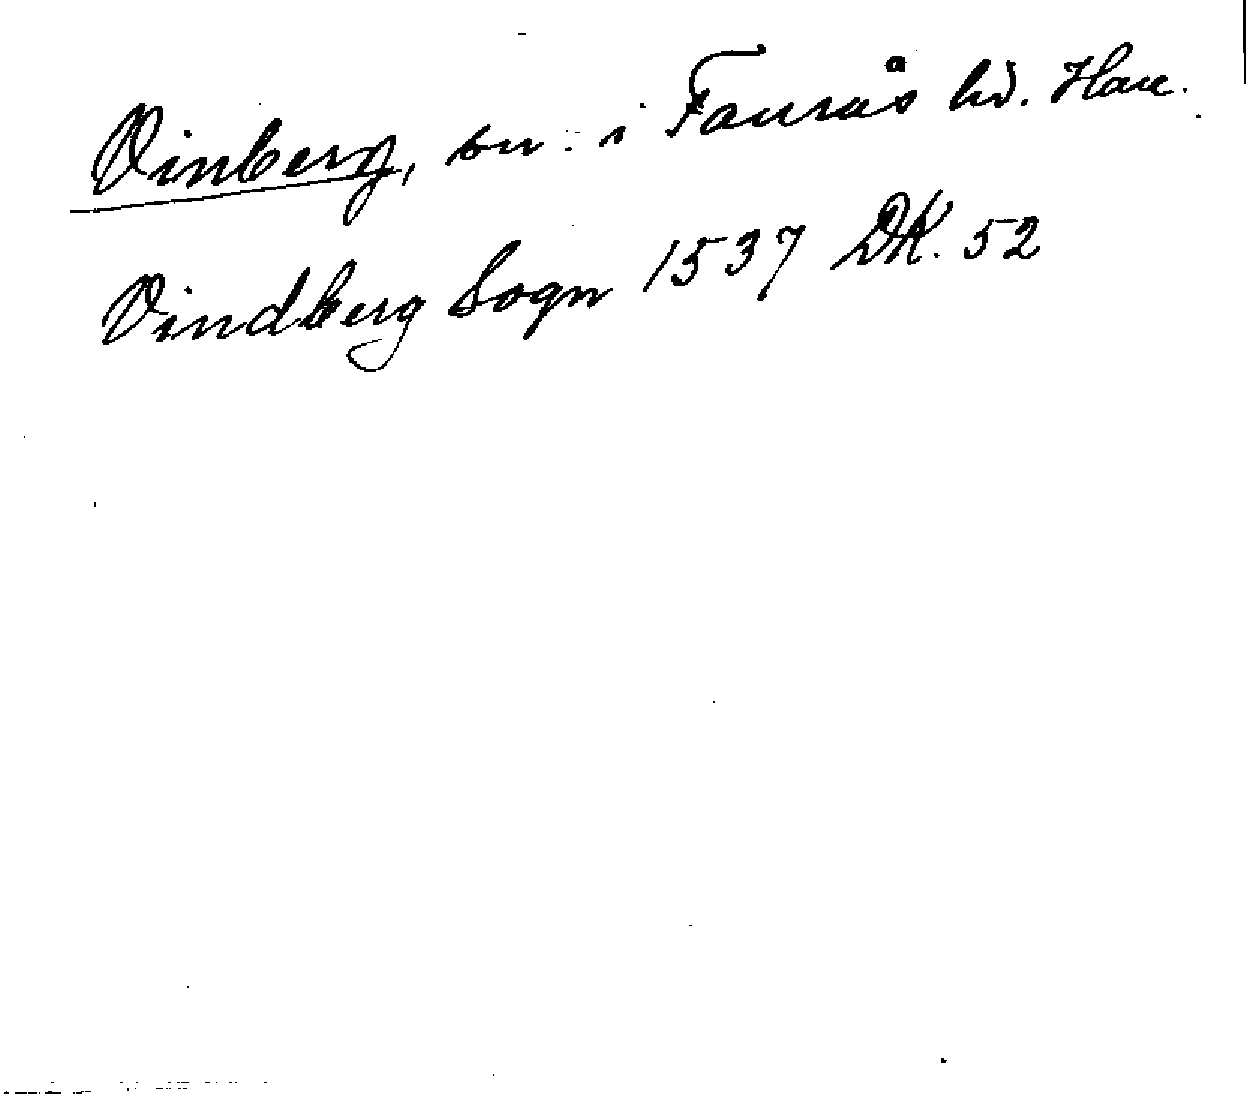 Vinberg, sn. i Faurås hd. Hall.
Vindberg Sogn 1537 DK. 52